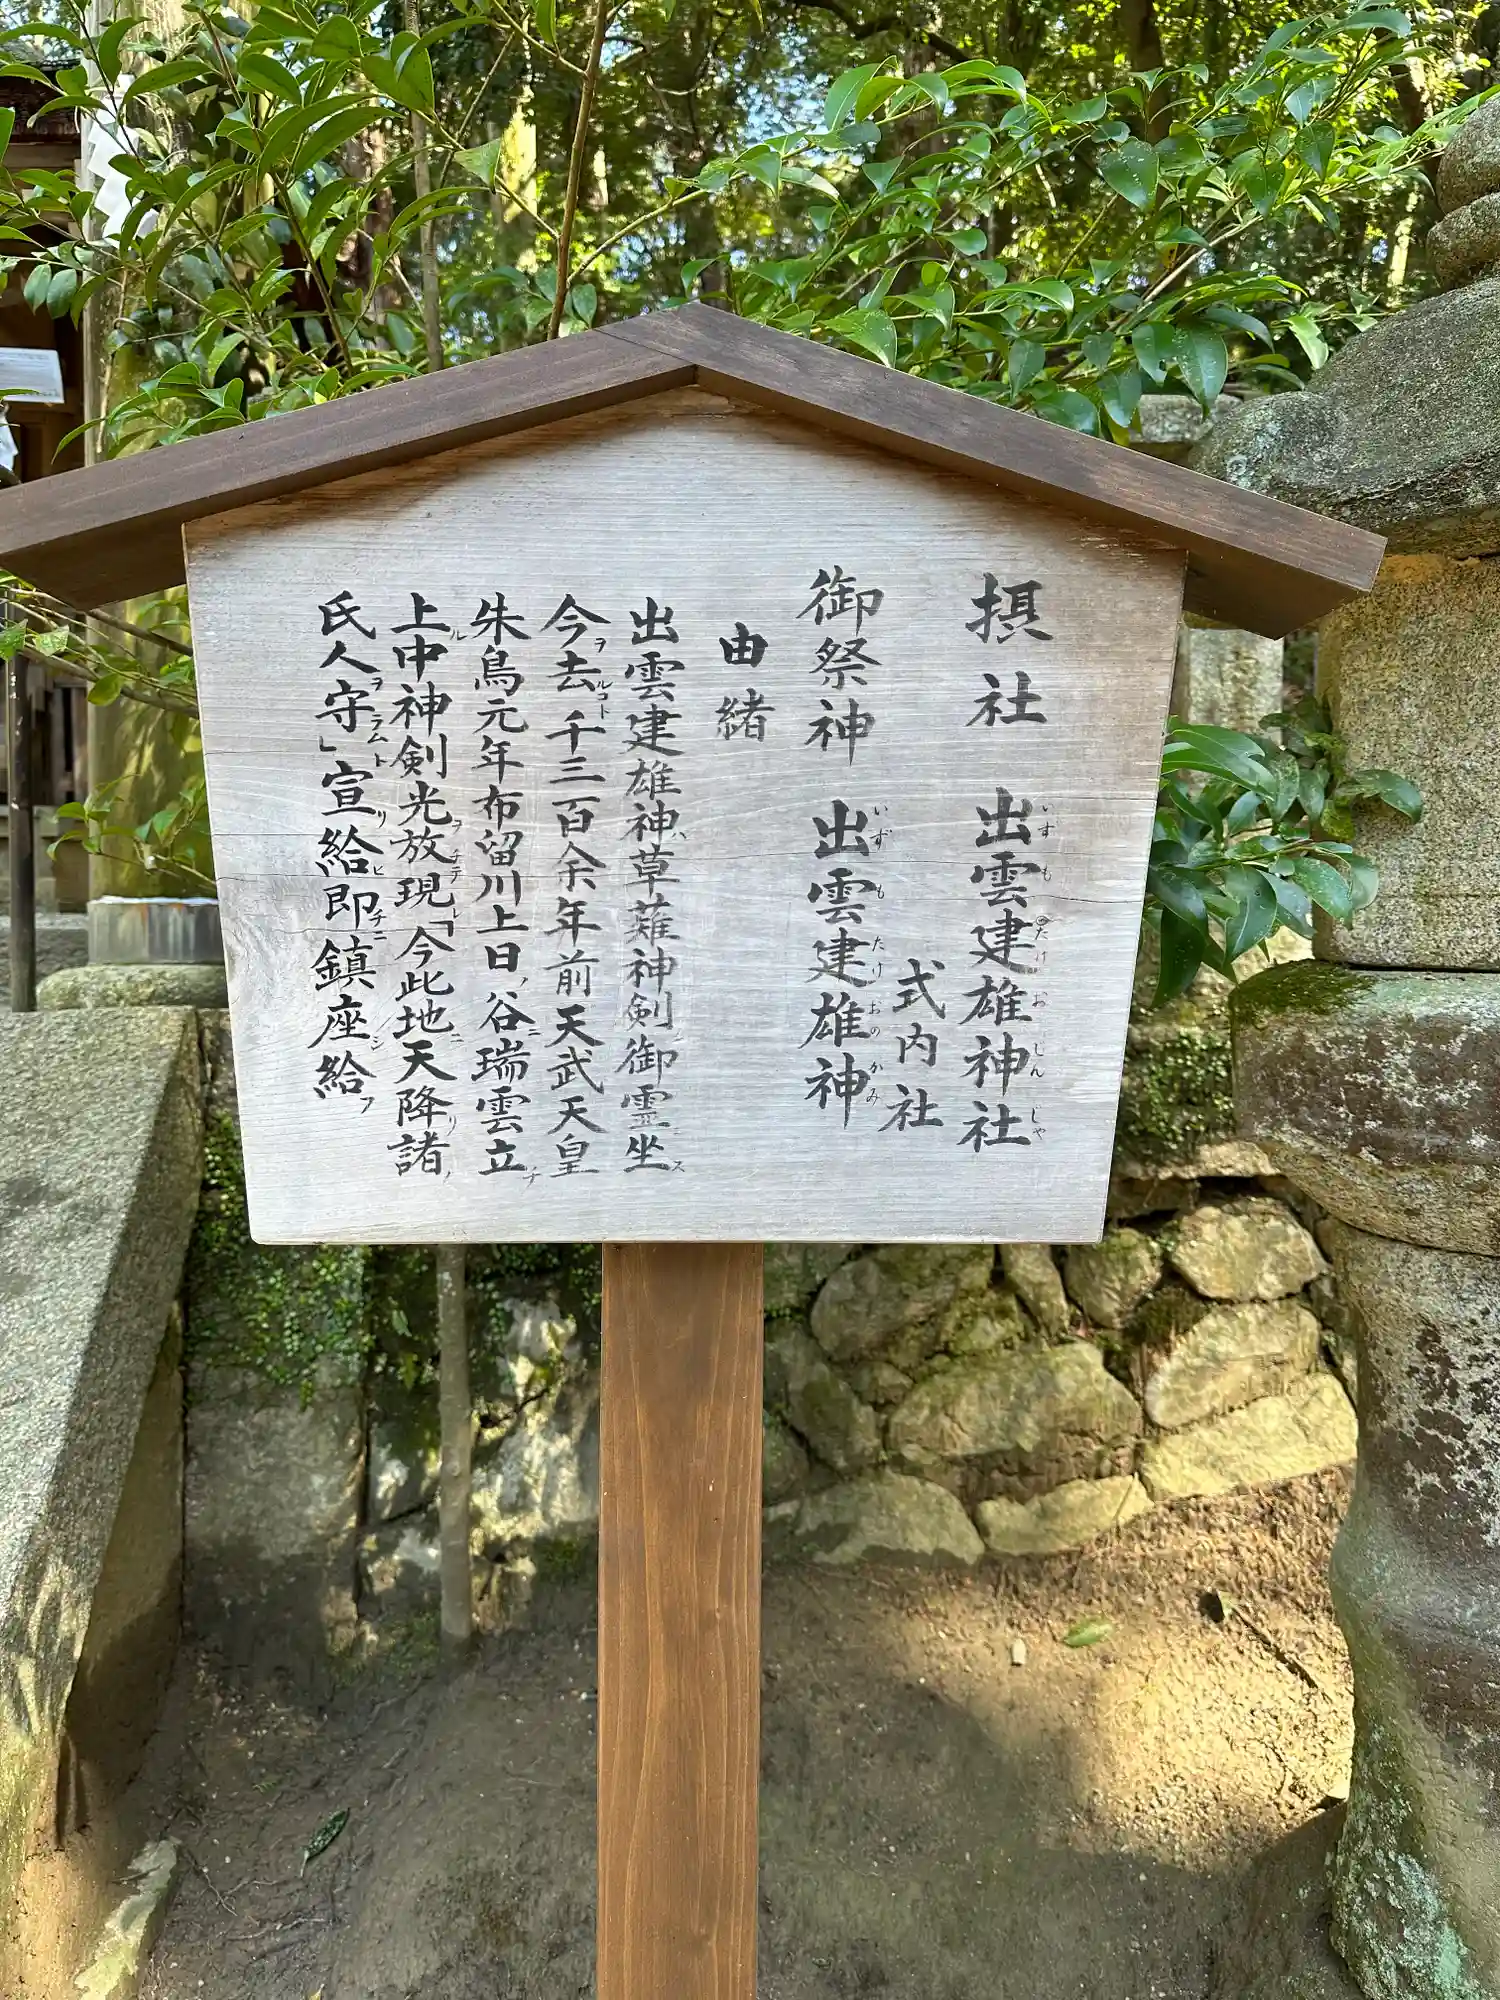 摂社 出雲建雄神社
いずも たけ お じん じゃ
式内社
御祭神 出雲建雄神
いずも たけおのかみ
由緒
出雲建雄神ハ草薙神剣ノ御霊ニ坐ス
今ヲ去ルコト千三百余年前天武天皇
朱鳥元年布留川上日ノ谷ニ瑞雲立チ
上ル中神剣光ヲ放チテ現レ「今此地ニ天降リ諸ノ
氏人ヲ守ラムト」宣リ給ヒ即チニ鎮座シ給フ